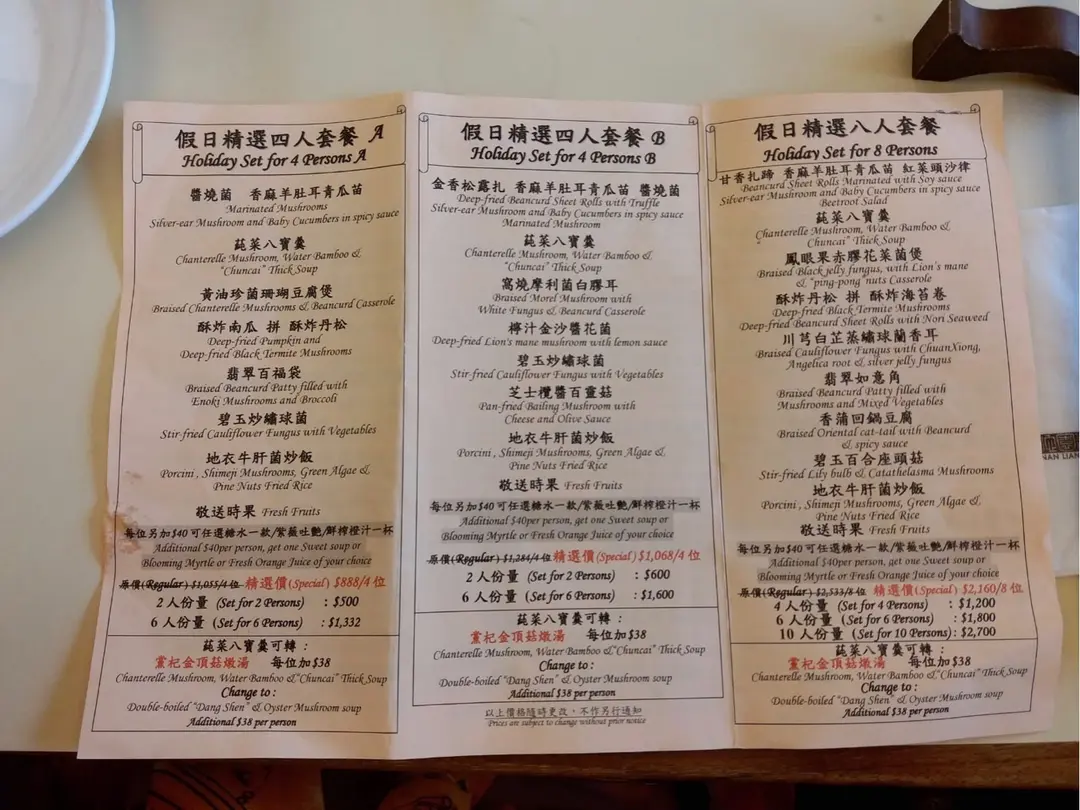 假日精選四人套餐 A
Holiday Set for 4 Persons A
醬燒菌 香麻羊肚耳青瓜苗
Marinated Mushrooms
Silver-ear Mushroom and Baby Cucumbers in spicy sauce
蒓菜八寶羹
Chanterelle Mushroom, Water Bamboo &
"Chuncai" Thick Soup
黃油珍菌珊瑚豆腐煲
Braised Chanterelle Mushrooms & Beancurd Casserole
酥炸南瓜 拼 酥炸丹松
Deep-fried Pumpkin and
Deep-fried Black Termite Mushrooms
翡翠百福袋
Braised Beancurd Patty filled with
Enoki Mushrooms and Broccoli
碧玉炒繡球菌
Stir-fried Cauliflower Fungus with Vegetables
地衣牛肝菌炒飯
Porcini , Shimeji Mushrooms, Green Algae &
Pine Nuts Fried Rice
敬送時果 Fresh Fruits
每位另加$40可任選糖水一款/紫薇吐艷/鮮榨橙汁一杯
Additional $40per person, get one Sweet soup or
Blooming Myrtle or Fresh Orange Juice of your choice
原價(Regular) $1,055/4 位 精選價(Special) $888/4 位
2 人份量 (Set for 2 Persons) : $500
6 人份量 (Set for 6 Persons) : $1,332
蒓菜八寶羹可轉 :
黨杞金頂菇燉湯 每位加$38
Chanterelle Mushroom, Water Bamboo &"Chuncai" Thick Soup
Change to :
Double-boiled "Dang Shen" & Oyster Mushroom soup
Additional $38 per person
假日精選四人套餐 B
Holiday Set for 4 Persons B
金香松露扎 香麻羊肚耳青瓜苗 醬燒菌
Deep-fried Beancurd Sheet Rolls with Truffle
Silver-ear Mushroom and Baby Cucumbers in spicy sauce
Marinated Mushroom
蒓菜八寶羹
Chanterelle Mushroom, Water Bamboo &
"Chuncai" Thick Soup
窩燒摩利菌白膠耳
Braised Morel Mushroom with
White Fungus & Beancurd Casserole
檸汁金沙醬花菌
Deep-fried Lion's mane mushroom with lemon sauce
碧玉炒繡球菌
Stir-fried Cauliflower Fungus with Vegetables
芝士欖醬百靈菇
Pan-fried Bailing Mushroom with
Cheese and Olive Sauce
地衣牛肝菌炒飯
Porcini , Shimeji Mushrooms, Green Algae &
Pine Nuts Fried Rice
敬送時果 Fresh Fruits
每位另加$40可任選糖水一款/紫薇吐艷/鮮榨橙汁一杯
Additional $40per person, get one Sweet soup or
Blooming Myrtle or Fresh Orange Juice of your choice
原價(Regular) $1,284/4 位 精選價(Special) $1,068/4 位
2 人份量 (Set for 2 Persons) : $600
6 人份量 (Set for 6 Persons) : $1,600
蒓菜八寶羹可轉 :
黨杞金頂菇燉湯 每位加$38
Chanterelle Mushroom, Water Bamboo &"Chuncai" Thick Soup
Change to :
Double-boiled "Dang Shen" & Oyster Mushroom soup
Additional $38 per person
以上價格隨時更改，不作另行通知
Prices are subject to change without prior notice
假日精選八人套餐
Holiday Set for 8 Persons
甘香扎蹄 香麻羊肚耳青瓜苗 紅菜頭沙律
Beancurd Sheet Rolls Marinated with Soy sauce
Silver-ear Mushroom and Baby Cucumbers in spicy sauce
Beetroot Salad
蒓菜八寶羹
Chanterelle Mushroom, Water Bamboo &
"Chuncai" Thick Soup
鳳眼果赤膠花菜菌煲
Braised Black jelly fungus, with Lion's mane
& "ping-pong" nuts Casserole
酥炸丹松 拼 酥炸海苔卷
Deep-fried Black Termite Mushrooms
Deep-fried Beancurd Sheet Rolls with Nori Seaweed
川芎白芷蒸繡球蘭香耳
Braised Cauliflower Fungus with ChuanXiong,
Angelica root & silver jelly fungus
翡翠如意角
Braised Beancurd Patty filled with
Mushrooms and Mixed Vegetables
香蒲回鍋豆腐
Braised Oriental cat-tail with Beancurd
& spicy sauce
碧玉百合座頭菇
Stir-fried Lily bulb & Catathelasma Mushrooms
地衣牛肝菌炒飯
Porcini , Shimeji Mushrooms, Green Algae &
Pine Nuts Fried Rice
敬送時果 Fresh Fruits
每位另加$40可任選糖水一款/紫薇吐艷/鮮榨橙汁一杯
Additional $40per person, get one Sweet soup or
Blooming Myrtle or Fresh Orange Juice of your choice
原價(Regular) $2,533/8 位 精選價(Special) $2,160/8 位
4 人份量 (Set for 4 Persons) : $1,200
6 人份量 (Set for 6 Persons) : $1,800
10 人份量 (Set for 10 Persons) : $2,700
蒓菜八寶羹可轉 :
黨杞金頂菇燉湯 每位加$38
Chanterelle Mushroom, Water Bamboo &"Chuncai" Thick Soup
Change to :
Double-boiled "Dang Shen" & Oyster Mushroom soup
Additional $38 per person
NAN LIAN